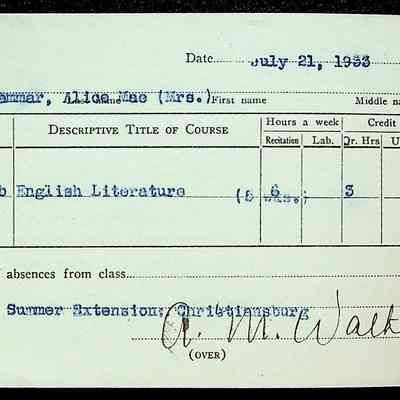 Date July 21, 1933
ammar, Alice Mae (Mrs.)
Last name First name Middle na
DESCRIPTIVE TITLE OF COURSE Hours a week Credit
Recitation Lab. Qr. Hrs U
b English Literature (8 wks.) 6 3
absences from class
Summer Extension: Christiansburg
A. M. Walk
(OVER)